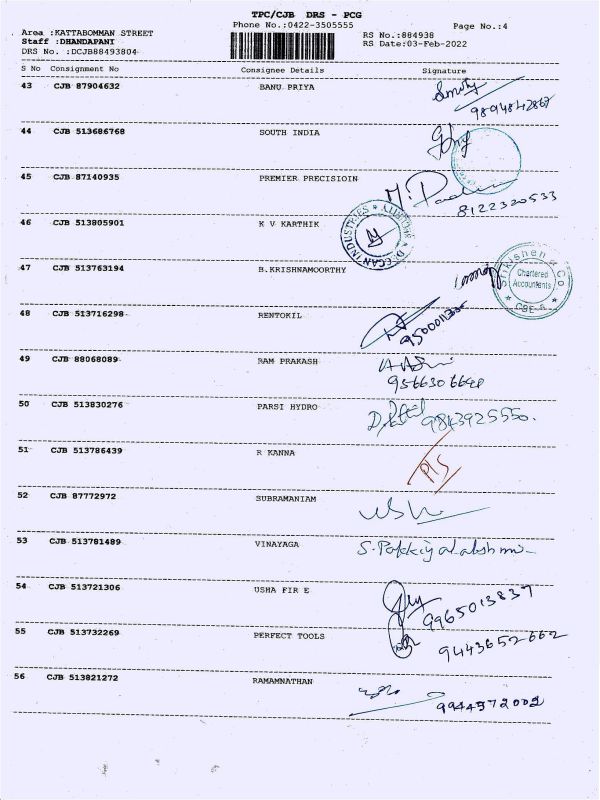 TPC/CJB DRS - PCG
Phone No.:0422-3505555
Page No.:4
Area :KATTABOMMAN STREET
Staff :DHANDAPANI
DRS No. :DCJB88493804
RS No.:884938
RS Date:03-Feb-2022
S No Consignment No Consignee Details Signature
43 CJB 87904632 BANU PRIYA
9894842867
44 CJB 513686768 SOUTH INDIA
45 CJB 87140935 PREMIER PRECISIOIN
8122320533
46 CJB 513805901 K V KARTHIK
47 CJB 513763194 B.KRISHNAMOORTHY
Srikishen & Co.
Chartered
Accountants
CBE-
48 CJB 513716298 RENTOKIL
49 CJB 88068089 RAM PRAKASH
50 CJB 513830276 PARSI HYDRO
9843925550.
51 CJB 513786439 R KANNA
52 CJB 87772972 SUBRAMANIAM
53 CJB 513781489 VINAYAGA
54 CJB 513721306 USHA FIR E
9965013837
55 CJB 513732269 PERFECT TOOLS
9443652662
56 CJB 513821272 RAMAMNATHAN
9944572002